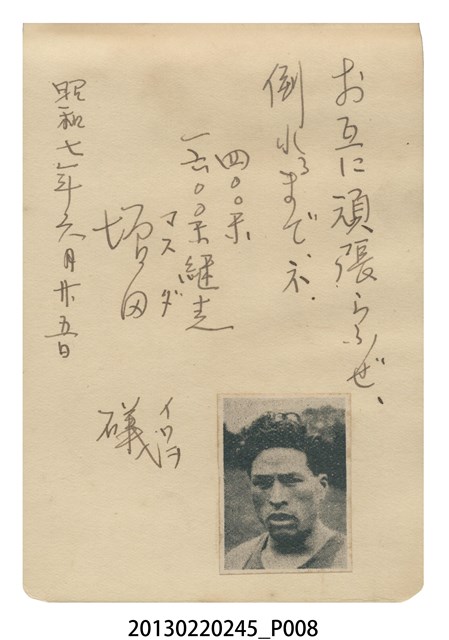 お互に頑張らふぜ、
倒れるまで、ネ.
四〇〇米
一六〇〇米継走
マスダ
増田
イソヲ
磯
昭和七年六月廿五日
20130220245_P008